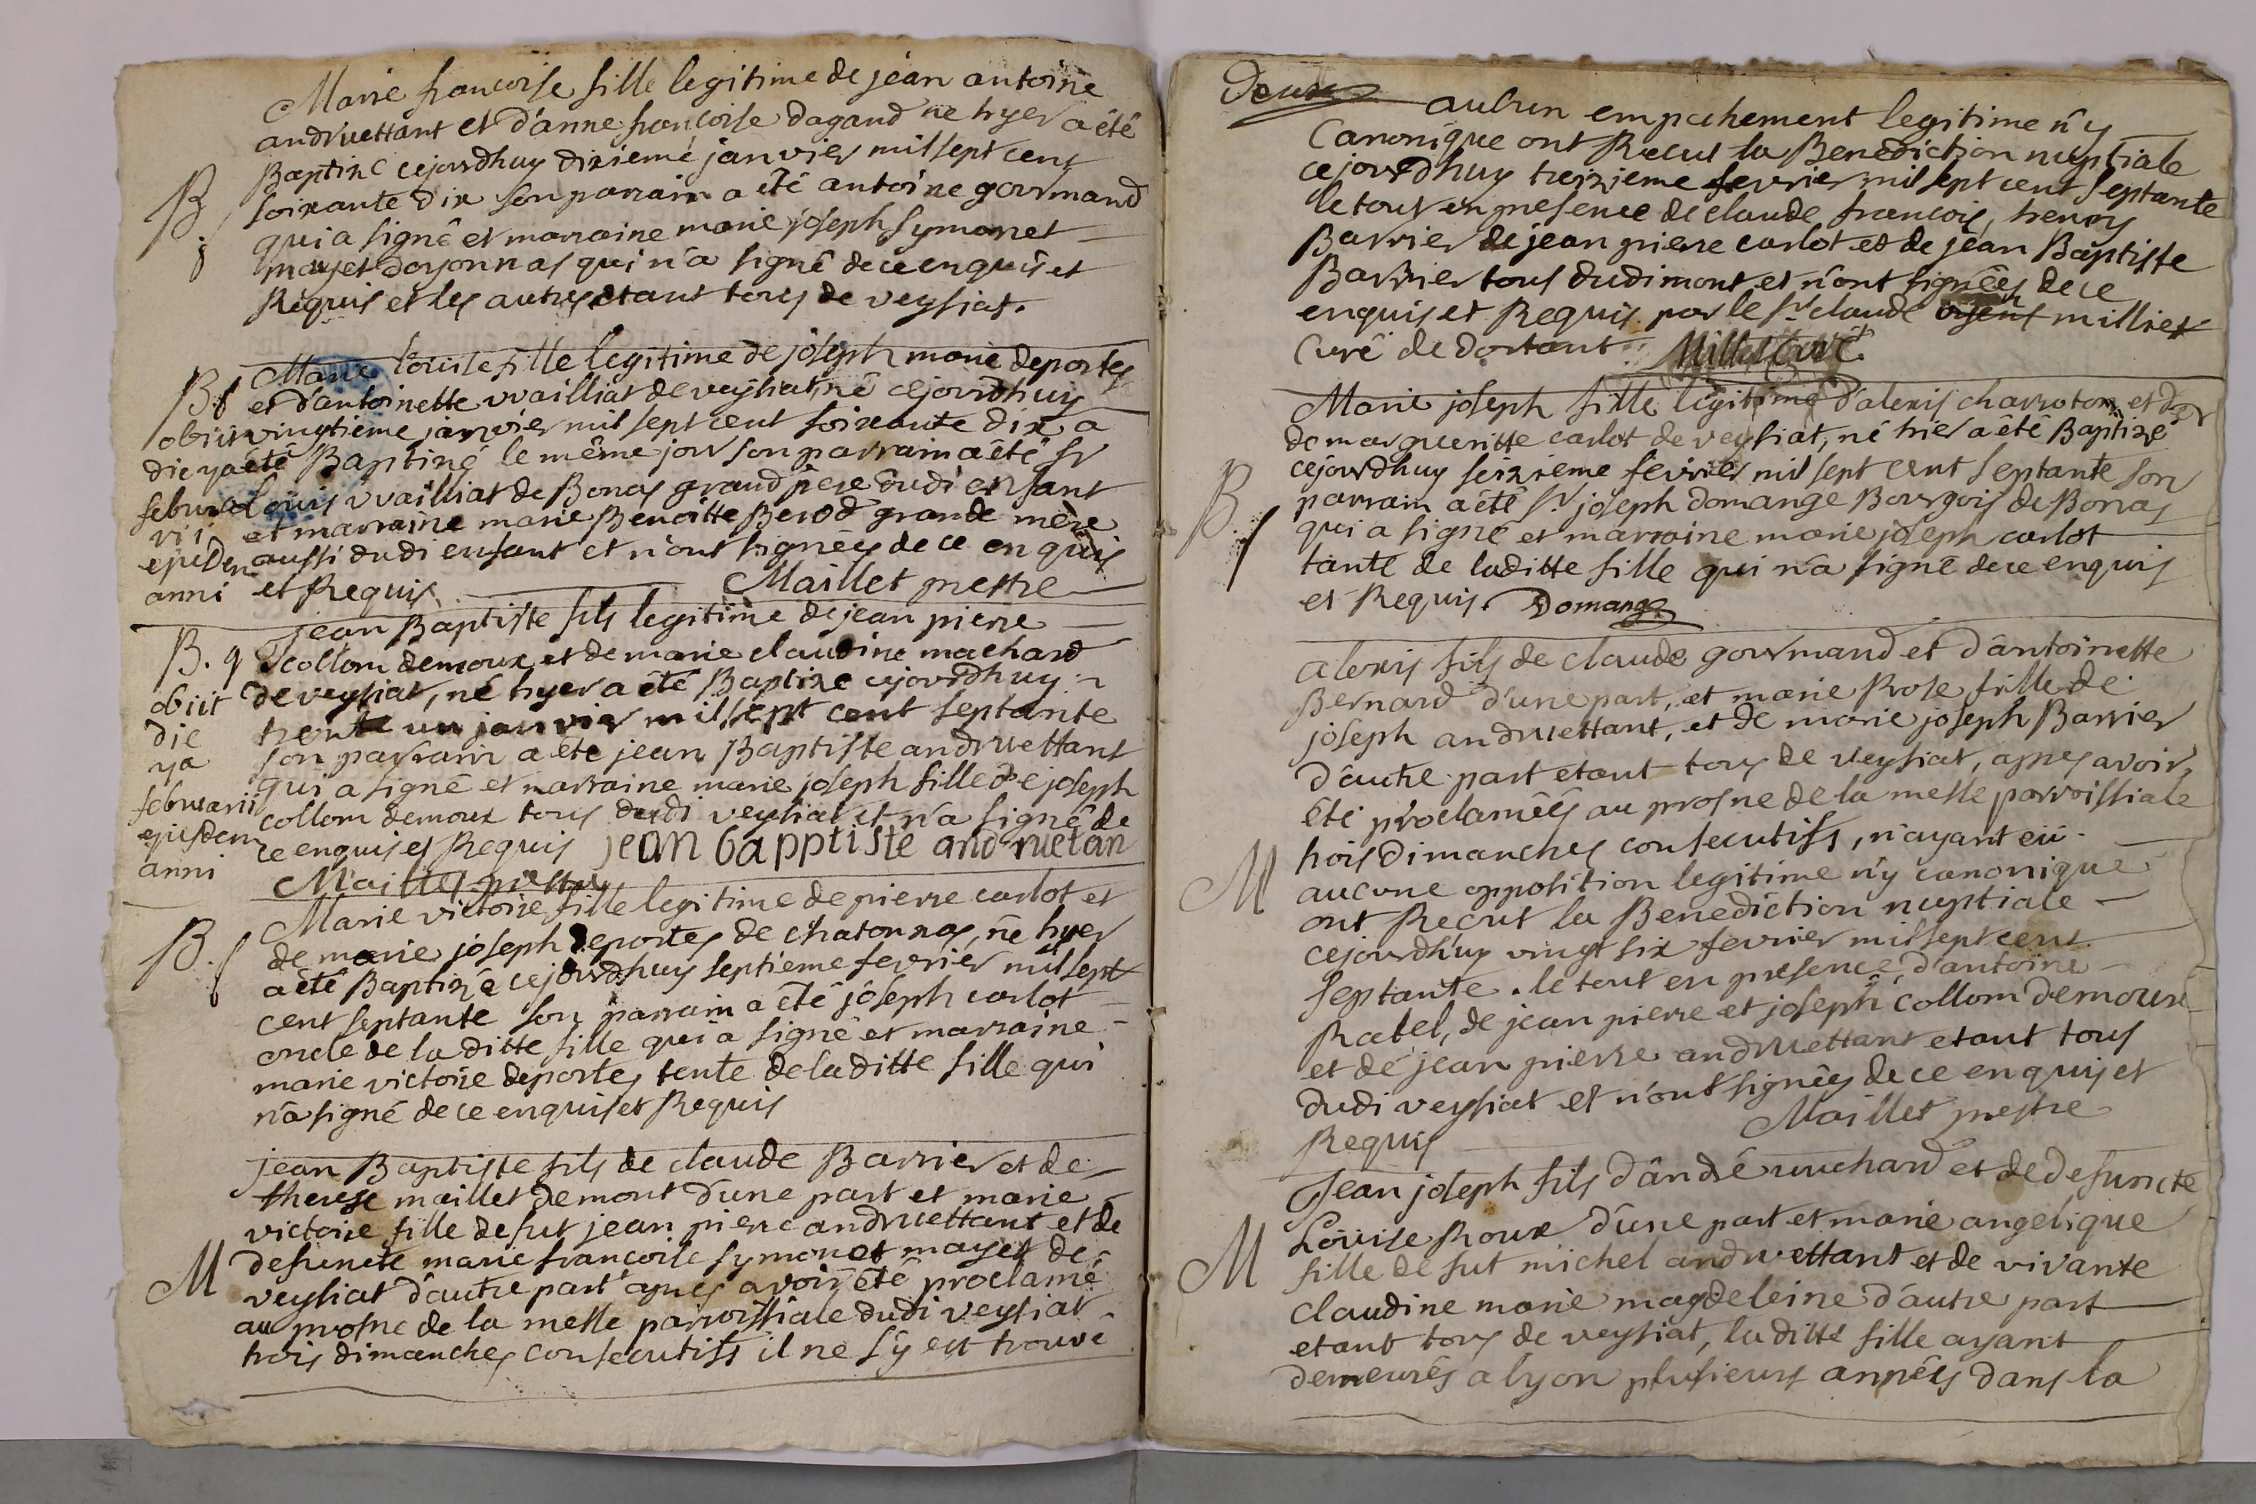 Marie francoise fille legitime de jéan antoine
andruettant et d'anne francoise dagand né hyer a été
Baptizé cejourdhuy dixieme janvier mil sept cent
B. f
soixante dix son parrain a été antoine gourmand
qui a signé et marraine marie joseph symonet
mayet doyonnas qui n'a signé de ce enquis et
Requis et les autres etant tous de veysiat.
B. f
Marie loüise fille legitime de joseph marie deportes
et d'antoinette vvailliat de veysiat, né cejourdhuy
vingtieme janvier mil sept cent soixante dix a
été Baptizé le même jour son parrain a été sr
Loüis vvailliat de Bonas grand père dudi enfant
et marraine marie Benoitte Berod grande mère
aussi dudi enfant et n'ont signés de ce enquis
et Requis Maillet prestre
obiit
die ya
februarii
ejusdem
anni
jean Baptiste fils legitime de jean pierre
collom demoux et de marie claudine machard
de veysiat, né hyer a été Baptizé cejourdhuy
trente un janvier mil sept cent septante
son parrain a été jean Baptiste andruettant
qui a signé et marraine marie joseph fille de joseph
collom demoux tous dudi veysiat et n'a signé de
ce enquis et Requis jean bapptiste andruetan
Maillet prestre
B. g
obiit
die
ya
februarii
ejusdem
anni
Marie victoire fille legitime de pierre carlot et
de marie joseph deportes de chatonnas, né hyer
B. f
a été Baptizé cejourdhuy septieme fevrier mil sept
cent septante son parrain a été joseph carlot
oncle de la ditte fille qui a signé et marraine
marie victoire deportes tente de la ditte fille qui
n'a signé de ce enquis et Requis
jean Baptiste fils de claude Barrier et de
therese maillet demont d'une part et marie
victoire fille de fut jean pierre andruettant et de
M
defuncte marie francoise symonet mayet de
veysiat d'autre part apres avoir été proclamé
au prosne de la messe parroissiale dudi veysiat
trois dimanches consecutifs il ne s'y est trouvé
Deux
aucun empechement legitime n'y
canonique ont Recut la Benediction nuptiale
cejourdhuy treizieme fevrier mil sept cent septante
le tout en presence de claude francois, henry
Barrier de jean pierre carlot et de jéan Baptiste
Barrier tous dudi mont et n'ont signées de ce
enquis et Requis par le sr claude milliet
Curé de Dortant Milliet Curé
Marie joseph fille legitime d'alexis charroton et
de marguerite carlot de veysiat, né hier a été Baptizé
cejourdhuy seizieme fevrier mil sept cent septante son
B. f
parrain a été sr joseph domange Bourgois de Bonas
qui a signé et marraine marie joseph carlot
tante de laditte fille qui n'a signé de ce enquis
et Requis. Domange
alexis fils de claude gourmand et d'antoinette
Bernard d'une part, et marie Rose fille de
joseph andruettant, et de marie joseph Barrier
d'autre part etant tous de veysiat, apres avoir
été proclamées au prosne de la messe parroissiale
trois dimanches consecutifs, n'ayant eü
M
aucune opposition legitime n'y canonique
ont Recut la Benediction nuptiale
cejourdhuy vingt six fevrier mil sept cent
septante. le tout en presence d'antoine
Rabel, de jean pierre et joseph collom demoux
et de jean pierre andruettant etant tous
dudi veysiat et n'ont signés de ce enquis et
Requis Maillet prestre
Jean joseph fils d'andré vuchard et de defuncte
Loüise Roux d'une part et marie angelique
M
fille de fut michel andruettant et de vivante
claudine marie magdeleine d'autre part
etant tous de veysiat, la ditte fille ayant
demeurés a lyon plusieurs années dans la